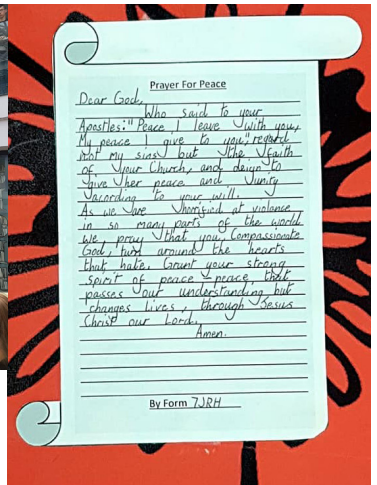 Prayer For Peace
Dear God,
Who said to your
Apostles:" Peace I leave with you,
My peace I give to you", regard
not my sins but the faith
of your Church, and deign to
give her peace and unity
acording to your will.
As we are horified at violence
in so many parts of the world
we pray that you, Compassionate
God, turn around the hearts
that hate. Grant your strong
spirit of peace - peace that
passes our understanding but
changes lives, through Jesus
Christ our Lord.
Amen.
By Form 7JRH